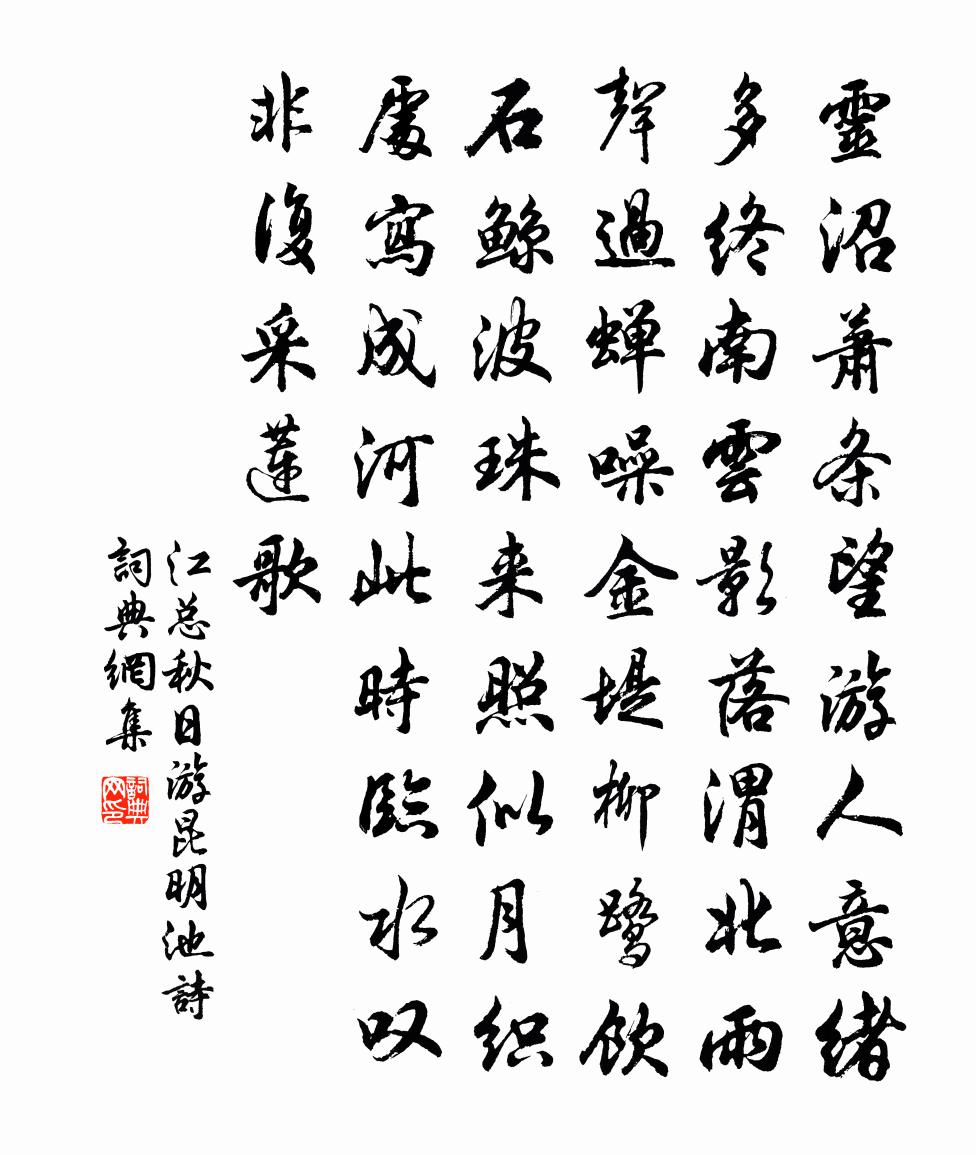 靈沼蕭条望游人意緒
多終南雲影落渭北雨
聲過蝉噪金堤柳鷺飲
石鯨波珠来照似月织
處寫成河此時臨水叹
非復采蓮歌
江总秋日游昆明池詩
詞典網集
詞典网印